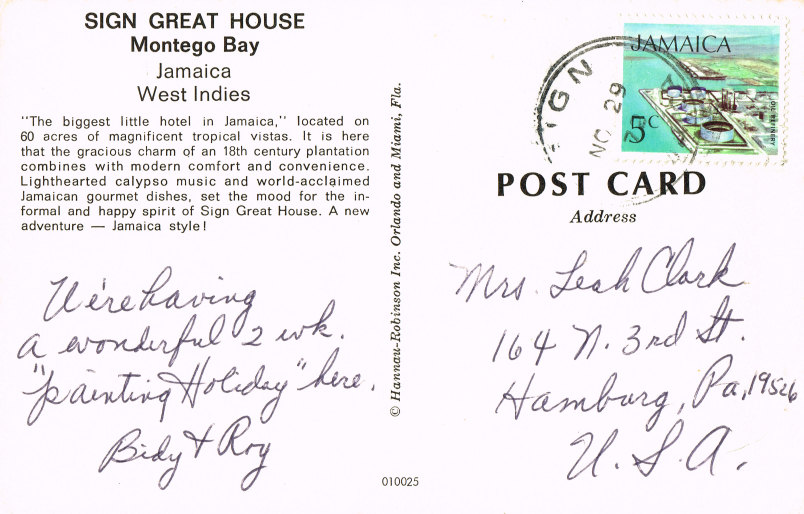 SIGN GREAT HOUSE
Montego Bay
Jamaica
West Indies
"The biggest little hotel in Jamaica," located on
60 acres of magnificent tropical vistas. It is here
that the gracious charm of an 18th century plantation
combines with modern comfort and convenience.
Lighthearted calypso music and world-acclaimed
Jamaican gourmet dishes, set the mood for the in-
formal and happy spirit of Sign Great House. A new
adventure — Jamaica style!
We're having
a wonderful 2 wk.
"painting Holiday" here.
Bidy & Roy
© Hannau-Robinson Inc. Orlando and Miami, Fla.
010025
JAMAICA
5c
OIL REFINERY
SIGN
NO 29
POST CARD
Address
Mrs. Leah Clark
164 N. 3rd St.
Hamburg, Pa, 19526
U.S.A.